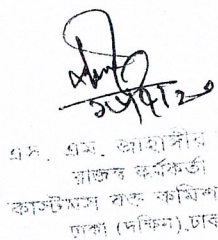 এস. এম. জাহাঙ্গীর
রাজস্ব কর্মকর্তা
কাস্টমস বন্ড কমিশ
ঢাকা (দক্ষিন), ঢাক